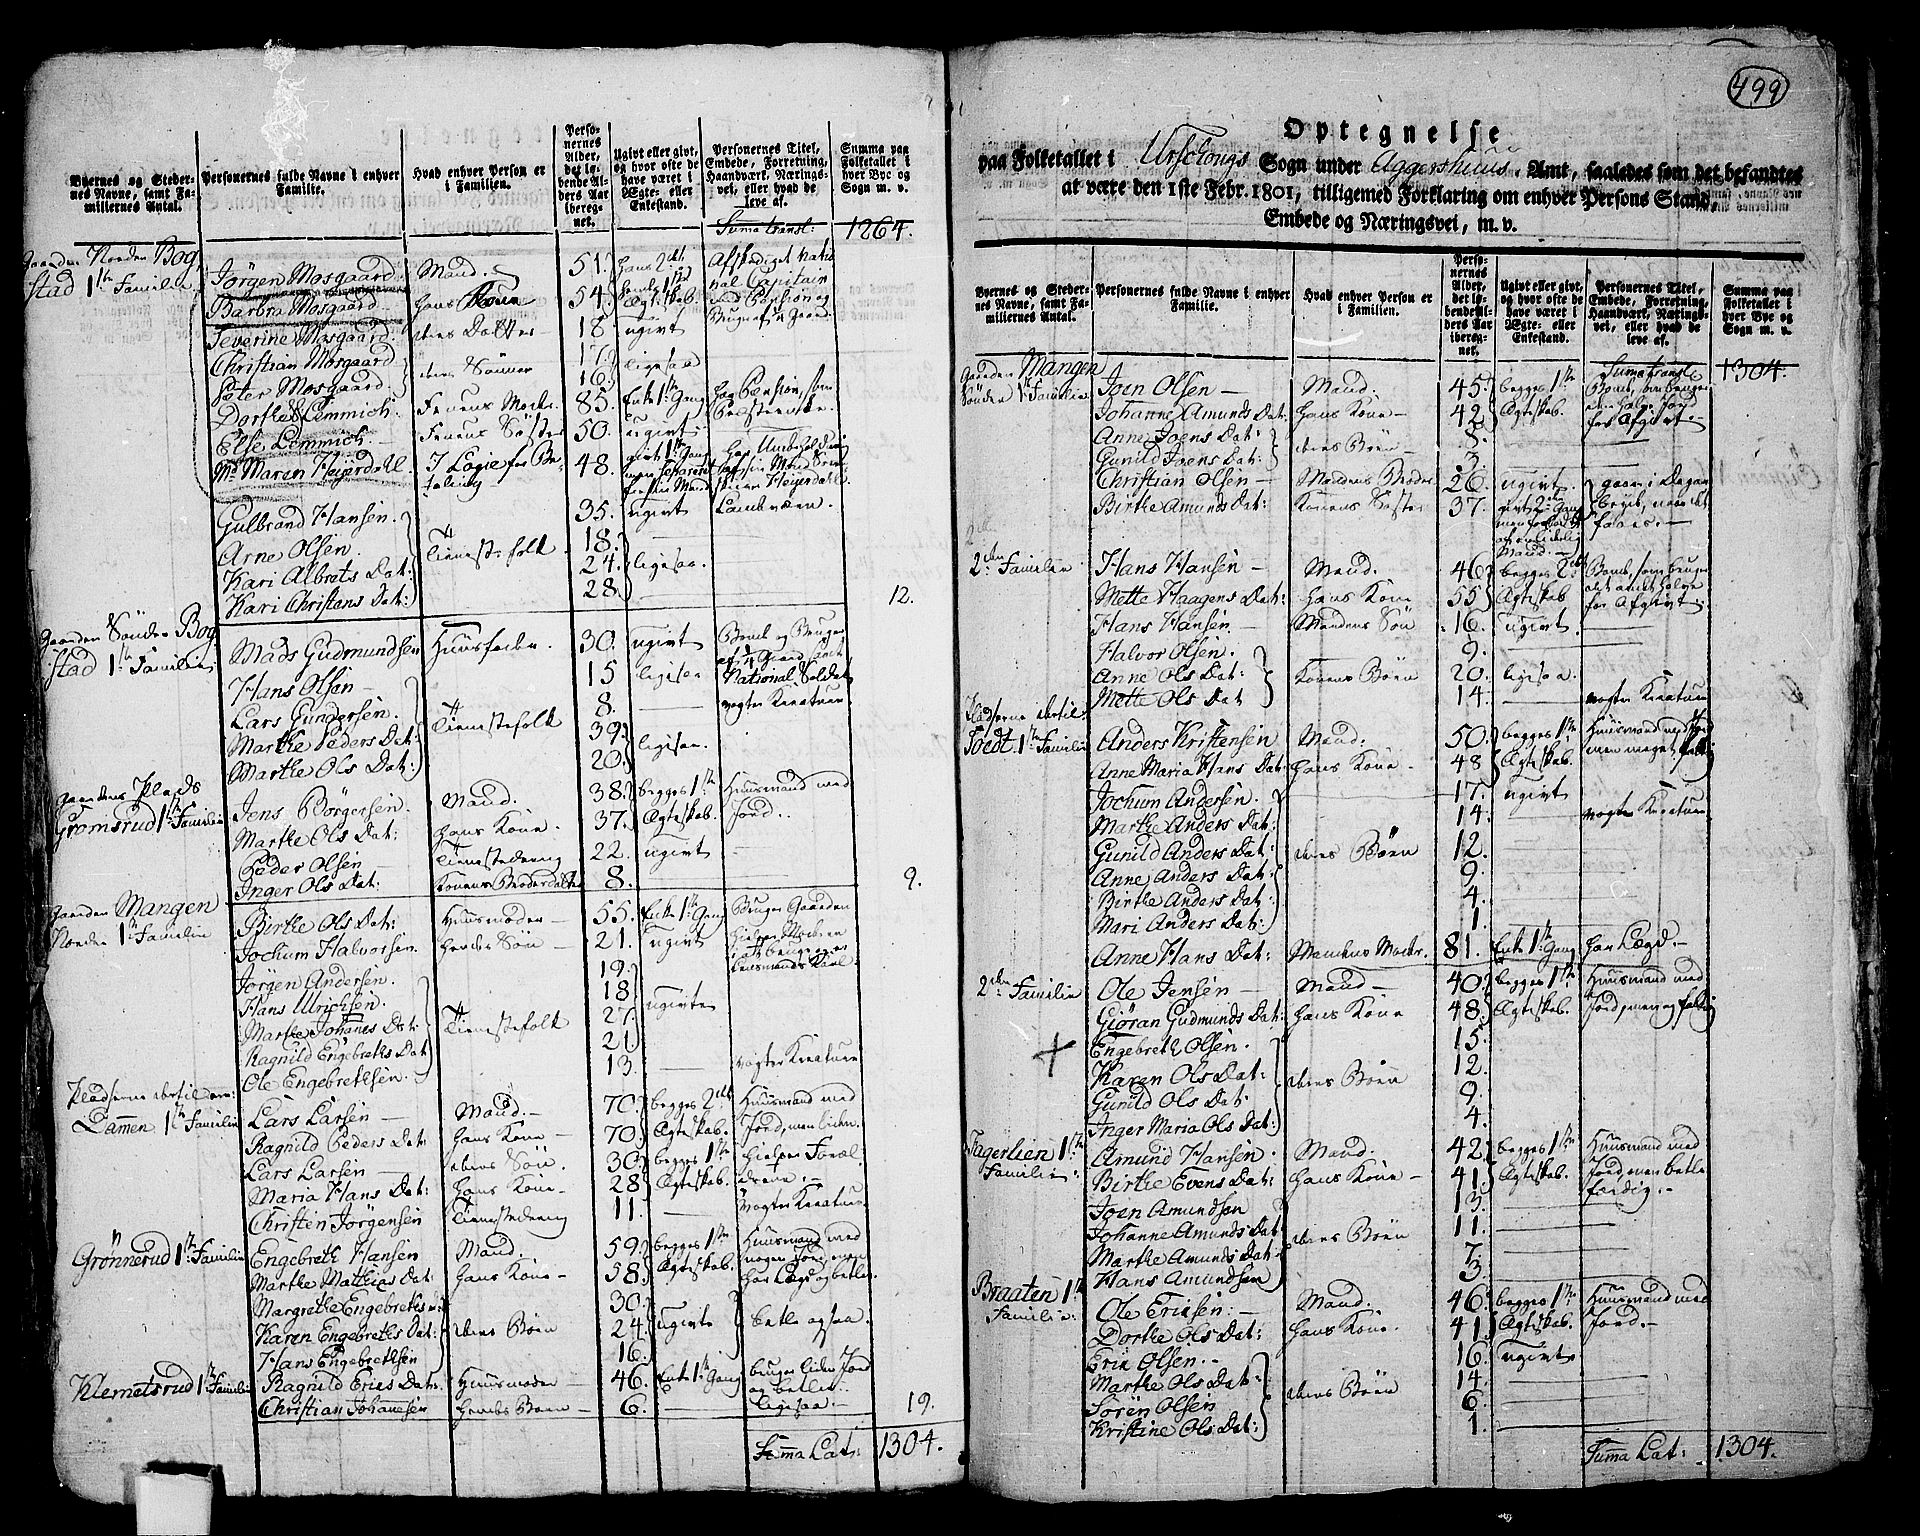 Byernes og Stedernes Navne, samt Familiernes Antal.
Personernes fulde Navne i enhver Familie.
Hvad enhver Person er i Familien.
Personernes Alder, det løbende Alders Aar iberegnet.
Ugivt eller givt, og hvor ofte de have været i Ægte- eller Enkestand.
Personernes Titel, Embede, Forretning, Haandværk, Næringsvei, eller hvad de leve af.
Summa paa Folketallet i hver Bye og Sogn m. v.
Suma transl: 1264.
Gaarden Norden Bogstad 1te Familie
Jörgen Mosgaard Mand. 51.
Barbra Mosgaard hans Kone 54.
Severine Mosgaard. deres Datter 18. ugivt
Christian Mosgaard 17. ligesaa
Peter Mosgaard deres Sönner 16.
Dorthe Lemmich. Konens Moder 85. Enke 1te Gang
Else Lemmich. Konens Söster 50. ugivt
Md. Maren Heijerdahl I Logie 48.
Gulbrand Hansen. 35. ugivt
Arne Olsen. Tienestefolk 18.
Kari Albrets Dat: 24. ligesaa.
Kari Christens Dat: 28. 12.
Gaarden Sönder Bogstad 1te Familie
Mads Gudmundsen Huusfader 30. ugivt
Hans Olsen 15 ligesaa National Soldat
Lars Gundersen. 8. vogter Kreature
Marthe Peders Dat: Tienestefolk 39. ligesaa.
Marthe Ols Dat: 20.
Gaardens Plads
Gromsrud 1te Familie
Jens Börgersen Mand. 38. begges 1te Huusmand med
Marthe Ols Dat: hans Kone. 37. Ægteskab. Jord.
Peder Olsen Tienestedreng 22. ugivt
Inger Ols Dat: Konens Broderdatter 8. 9.
Gaarden Mangen
Norden 1te Familie
Birthe Ols Dat: Huusmoder 55. Enke 1te Gang Bruger Gaarden
Jochum Halvorsen hendes Sön 21. ugivt
Jörgen Andersen. 19.
Hans Ulrichsen. 18. ugivte
Marthe Johanes Dat: Tienestefolk 27.
Ragnild Engebreths Dat 21.
Ole Engebrethsen. 13. vogter Kreature
Pladserne dertil ere:
Lammen 1te Familie
Lars Larsen Mand. 70. begges 2det Huusmand med
Ragnild Peders Dat: hans Kone 70. Ægteskab. Jord, men liden.
Lars Larsen deres Sön. 30. begges 1te hielper Forældrene.
Maria Hans Dat: hans Kone 28. Ægteskab.
Christen Jörgensen Tienestedreng 11. vogter Kreature
Grönnerud 1te Familie
Engebreth Hansen Mand. 59. begges 1te Huusmand med
Marthe Mathias Dat: hans Kone 58. Ægteskab. nogen Jord, men
Margrethe Engebreths D: 30.
Karen Engebreths Dat: deres Börn 24. ugivte betle ogsaa.
Hans Engebrethsen 16.
Klemetsrud 1te Familie
Ragnild Erics Dat: Huusmoder 46. Enke 1te Gang bruger liden Jord og betler.
Christian Johannesen hendes Barn 6. ligesaa. 19.
Summa Lat: 1304.
499
Optegnelse
paa Folketallet i Urschougs Sogn under Aggershuus Amt, saaledes som det befandtes
at være den 1ste Febr. 1801, tilligemed Forklaring om enhver Persons Stand,
Embede og Næringsvei, m. v.
Byernes og Stedernes Navne, samt Familiernes Antal.
Personernes fulde Navne i enhver Familie.
Hvad enhver Person er i Familien.
Personernes Alder, det løbende Alders Aar iberegnet.
Ugivt eller givt, og hvor ofte de have været i Ægte- eller Enkestand.
Personernes Titel, Embede, Forretning, Haandværk, Næringsvei, eller hvad de leve af.
Summa paa Folketallet i hver Bye og Sogn m. v.
Suma transl: 1304.
Gaarden Mangen
Sönder 1te Familie
Joen Olsen Mand. 45. begges 1te
Johanne Amunds Dat: hans Kone 42. Ægteskab.
Anne Joens Dat: deres Börn 8.
Gunild Joens Dat: 3.
Christian Olsen Mandens Broder 26. ugivt
Birthe Amunds Dat: Konens Söster 37.
2den Familie
Hans Hansen Mand. 46. begges 2det
Mette Haagens Dat: hans Kone 55. Ægteskab
Hans Hansen. Mandens Sön 16. ugivt
Halvor Olsen. 9.
Anne Ols Dat: Konens Börn 20. ligesaa.
Mette Ols Dat 14. vogter Kreature
Pladserne dertil
Toedt. 1te Familie
Anders Kristensen Mand. 50. begges 1te Huusmand med Jord
Anne Maria Hans Dat: hans Kone 48 Ægteskab. men meget fattig
Jochum Andersen. 17. ugivt
Marthe Anders Dat: 14. vogter Kreature
Gunild Anders Dat: deres Börn 12.
Anne Anders Dat: 9.
Birthe Anders Dat 4.
Mari Anders Dat: 1.
Anne Hans Dat: Mandens Moder. 81. Enke 1te Gang har Lægd.
2den Familie
Ole Jensen Mand 40. begges 1te Huusmand med
Giöran Gudmunds Dat: hans Kone 48. Ægteskab. Jord, men og fattig
Engebreth Olsen. 15.
Karen Ols Dat: deres Börn 12.
Gunild Ols Dat: 9.
Inger Maria Ols Dat: 4.
Fagerlien 1te
Familie
Amund Hansen. Mand. 42. begges 1te Huusmand med
Birthe Evens Dat: hans Kone 41. Ægteskab. Jord, men betlefærdig.
Joen Amundsen 13.
Johanne Amunds Dat deres Börn 11.
Marthe Amunds Dat: 7.
Hans Amundsen 3.
Braaten 1te
Familie
Ole Ericsen: Mand. 46. begges 1te Huusmand med
Dorthe Ols Dat: hans Kone. 41. Ægteskab. Jord.
Eric Olsen. 16. ugivt
Marthe Ols Dat: deres Börn 14.
Sören Olsen 6.
Kristine Ols Dat: 1.
Summa Lat: 1304.